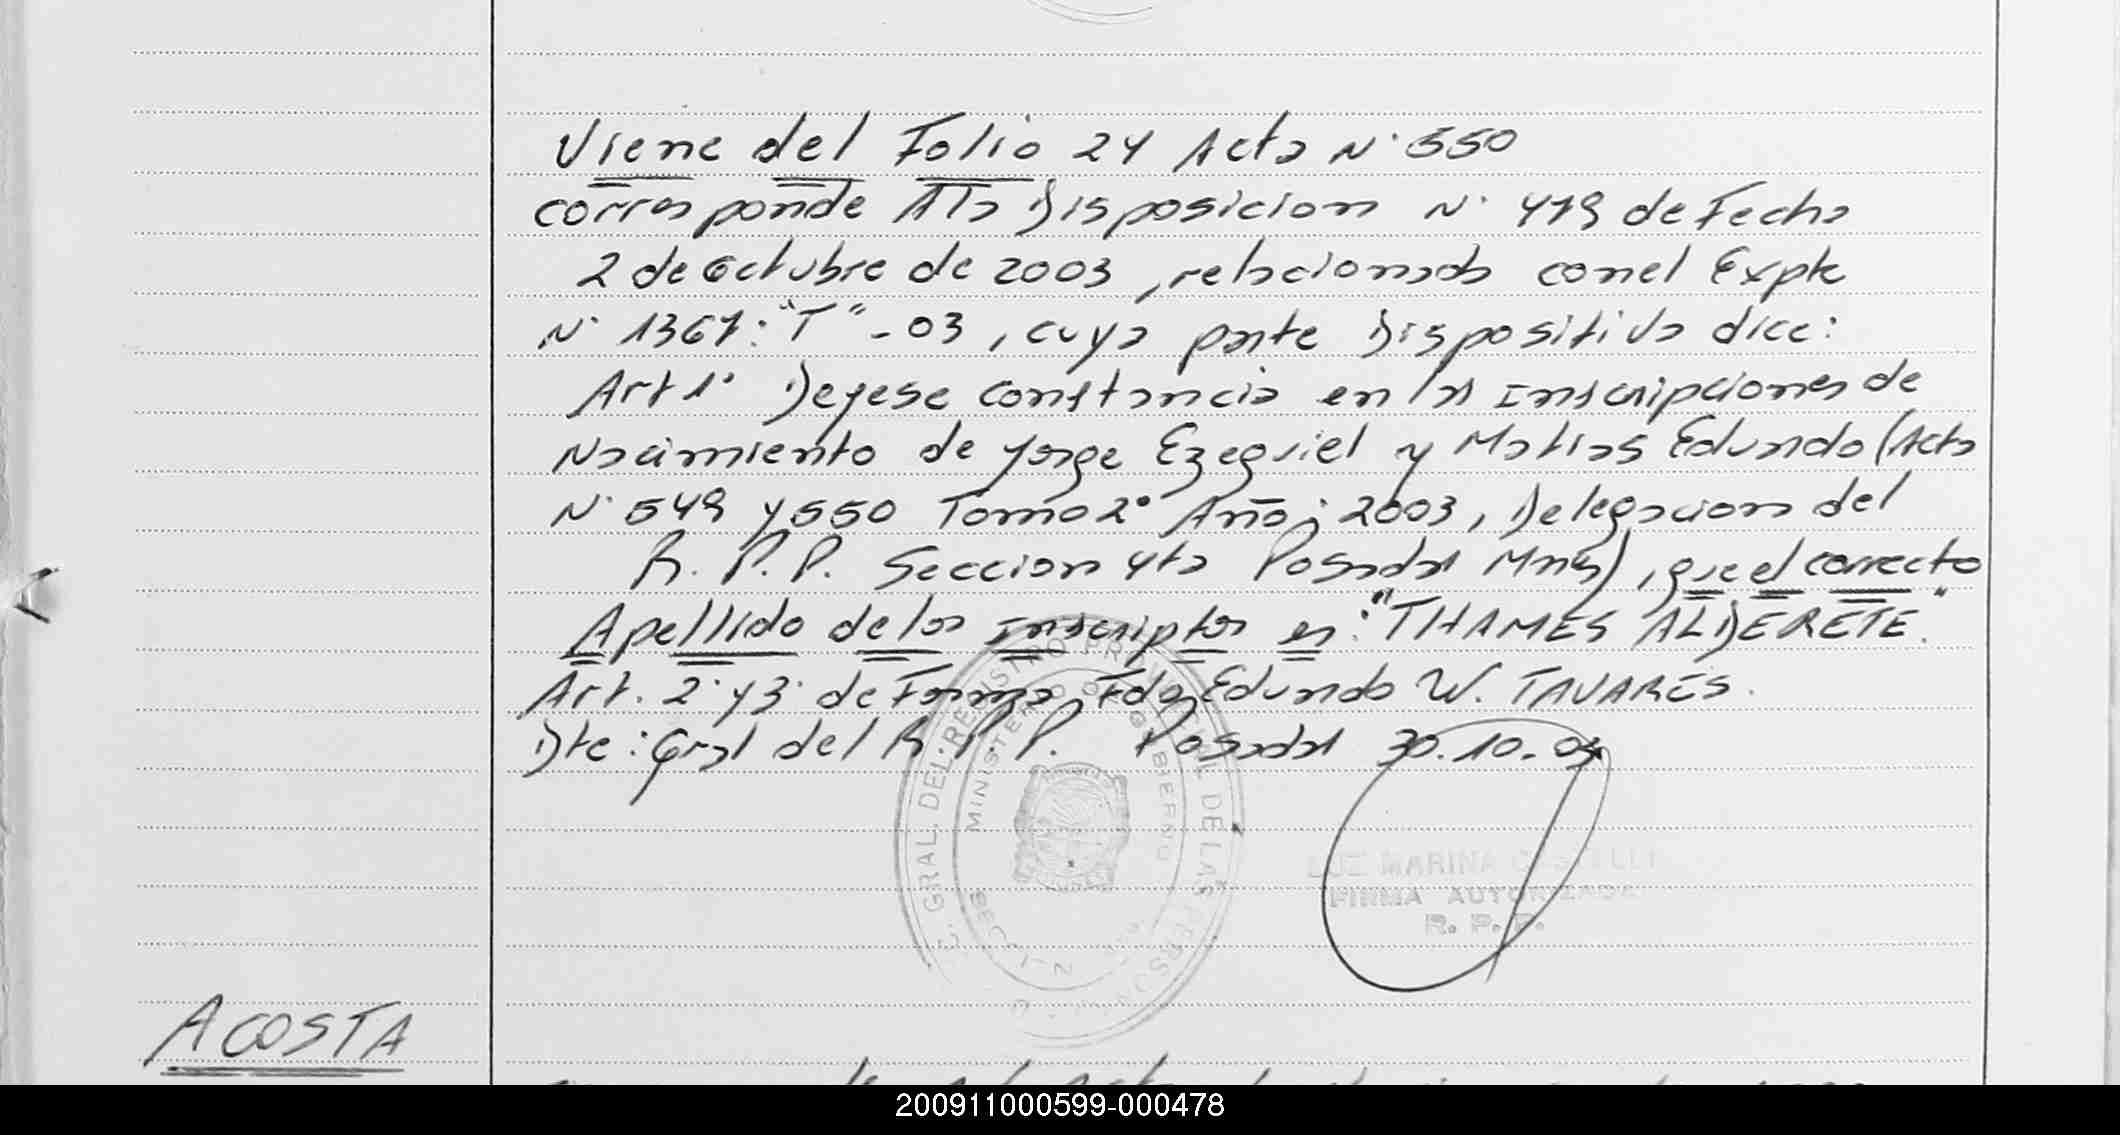 Viene del Folio 24 Acta N° 550
corresponde A la Disposicion N° 479 de Fecha
2 de Octubre de 2003, relacionado con el Expte
N° 1367: "T" - 03, cuya parte Dispositiva dice:
Art 1° Dejese constancia en las Inscripciones de
Nacimiento de Jorge Ezequiel y Matias Eduardo (Acta
N° 549 y 550 Tomo 2° Año: 2003, Delegacion del
R. P. P. Seccion 4ta Posadas Mnes), que el correcto
Apellido de los Inscriptos es: "THAMES ALDERETE".
Art. 2° y 3° de Forma, Fdo Eduardo W. TAVARES.
Dte: Gral del R. P. P. Posadas 30.10.03
GRAL. DEL REGISTRO PROVINCIAL DE LAS PERSONAS
MINISTERIO DE GOBIERNO
LUZ MARINA
FIRMA AUTORIZADA
R. P. P.
ACOSTA
200911000599-000478